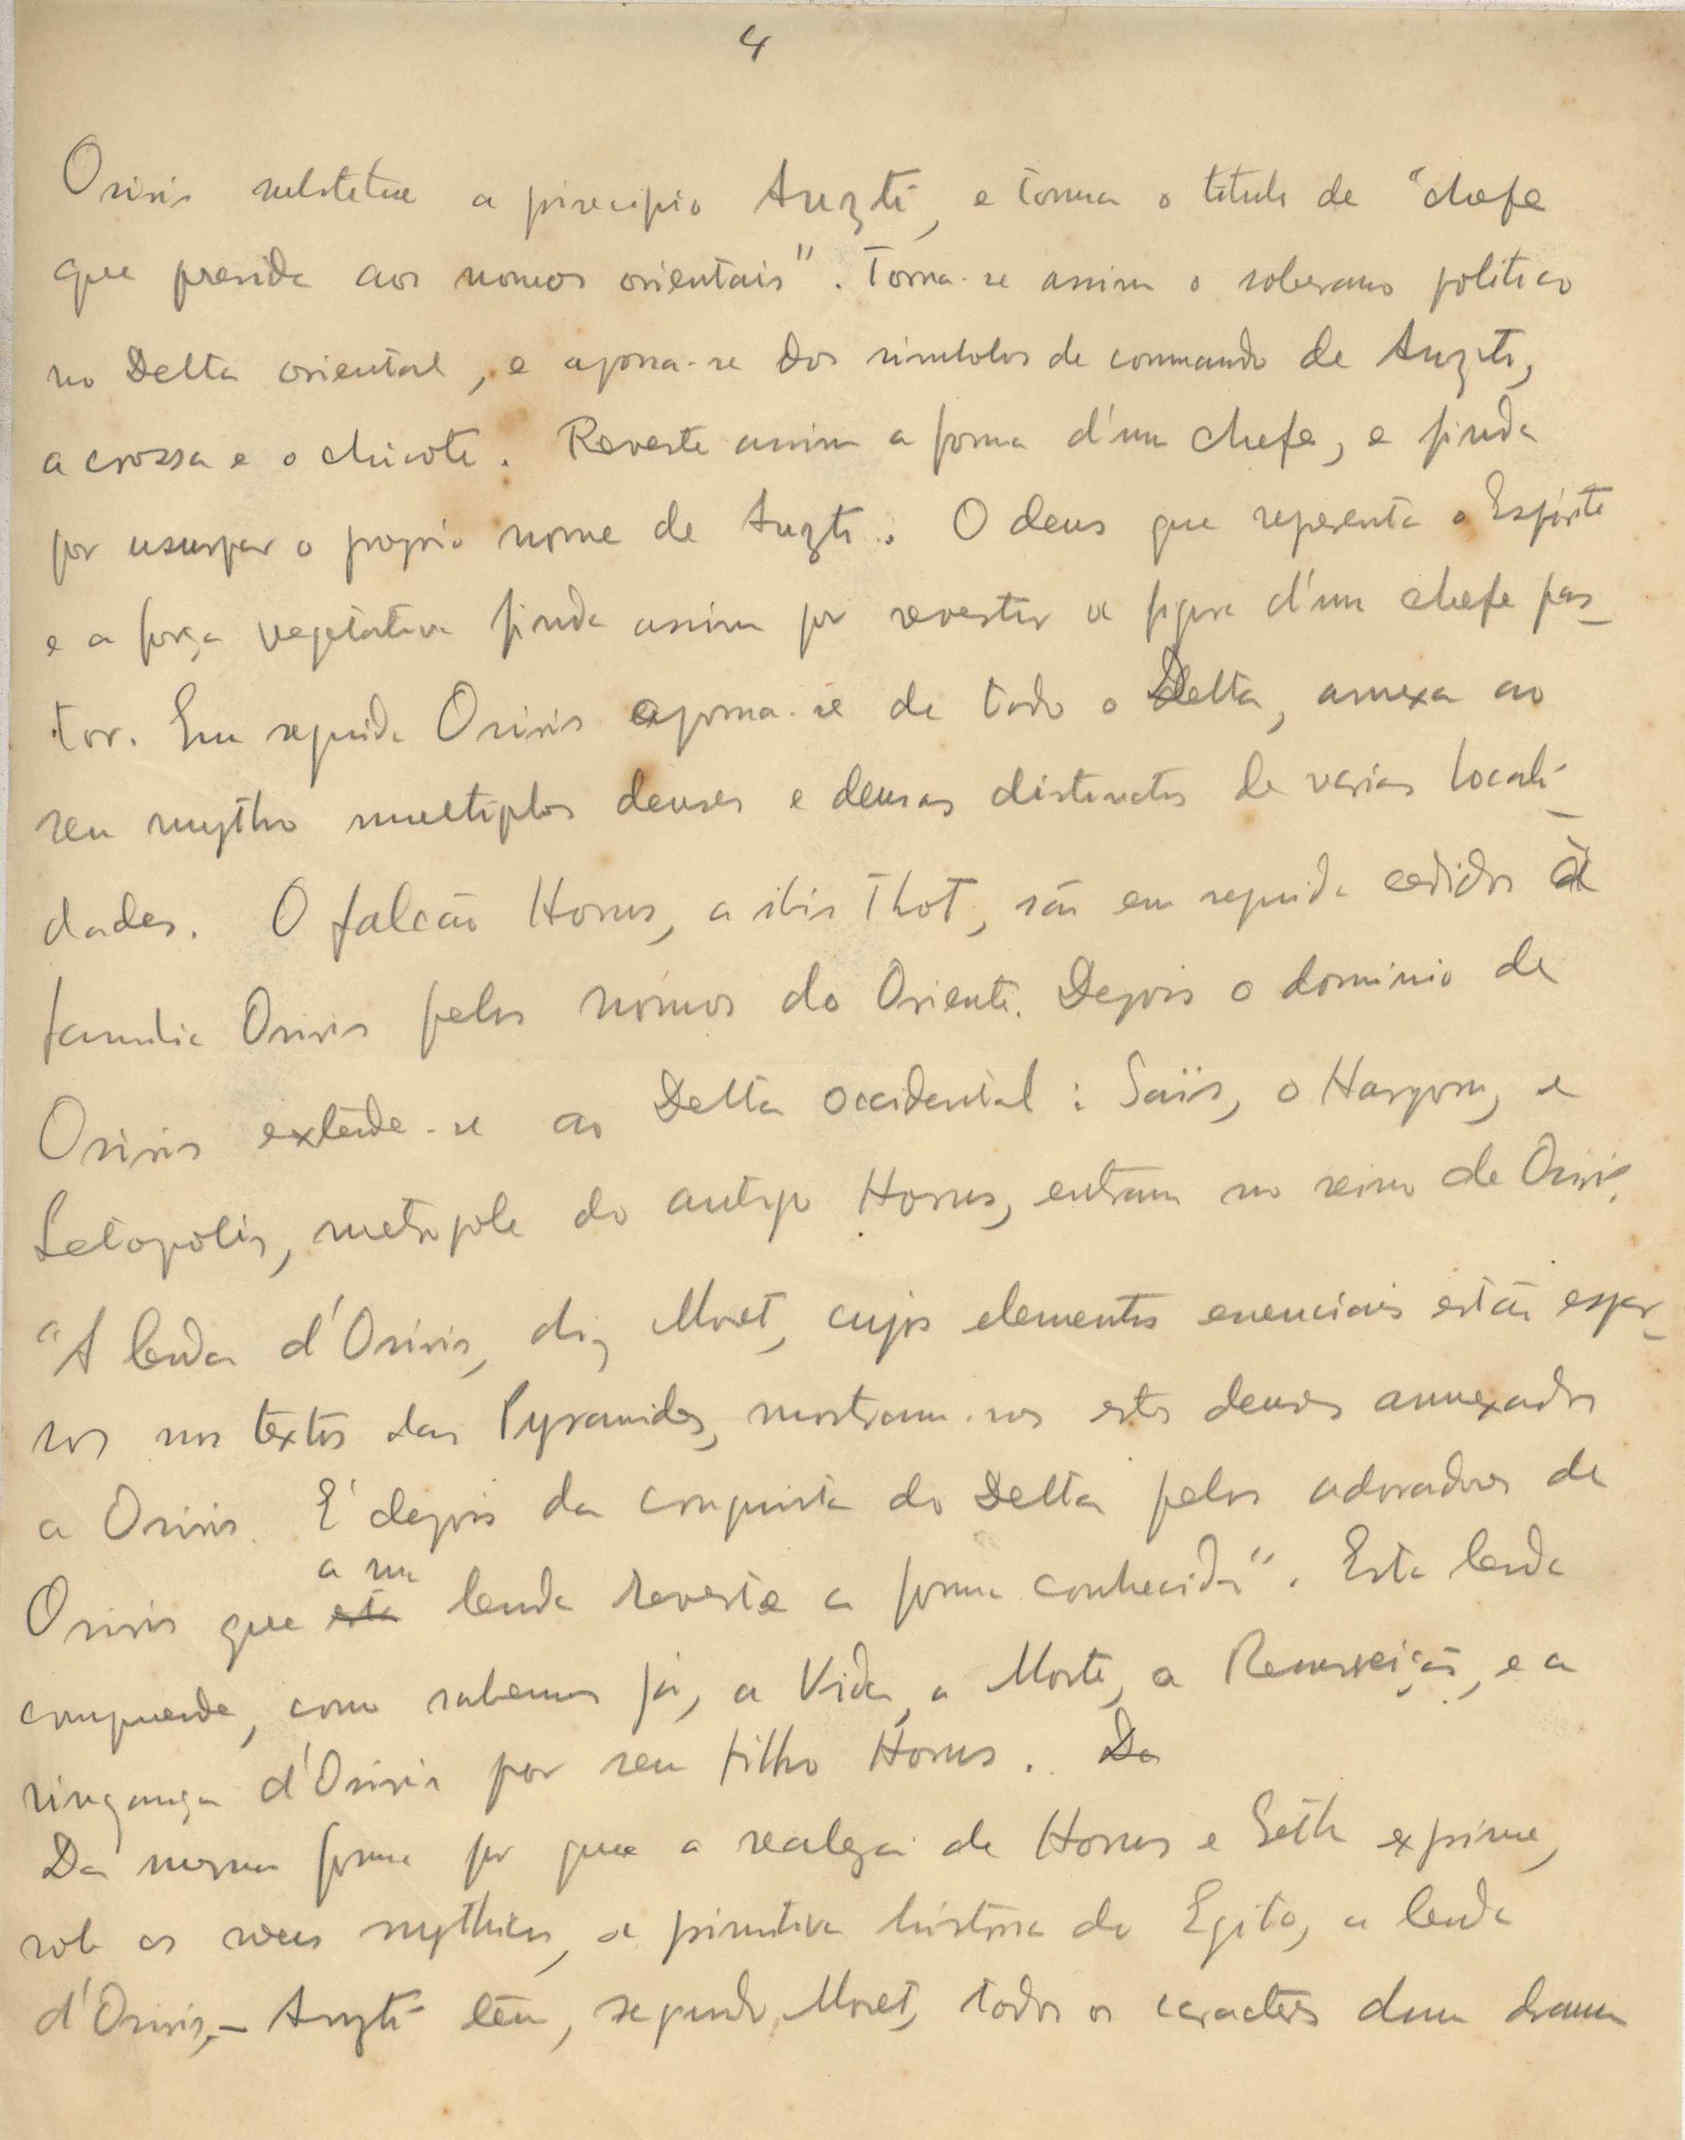 4
Osiris substitue a principio Anzti, e toma o titulo de "chefe
que preside aos nomos orientais". Torna-se assim o soberano politico
no Delta oriental, e apossa-se dos simbolos de commando de Anzti,
a crossa e o chicote. Reveste assim a forma d'um chefe, e finda
por usurpar o proprio nome de Anzti. O deus que representa o Espirito
e a força vegetativa finda assim por revestir a figura d'um chefe pas-
tor. Em seguida Osiris apossa-se de todo o Delta, annexa ao
seu mytho multiplos deuses e deusas distinctos de varias locali-
dades. O falcão Horus, a ibis Thot, são em seguida cedidos à
familia Osiris pelos nómos do Oriente. Depois o dominio de
Osiris extende-se ao Delta occidental: Saïs, o Harpon, e
Letopolis, metropole do antigo Horus, entram no reino de Osiris.
"A lenda d'Osiris, diz Moret, cujos elementos essenciais estão espar-
sos nos textos das Pyramides, mostram-nos estes deuses annexados
a Osiris. É depois da conquista do Delta pelos adoradores de
a sua
Osiris que esta lenda reveste a forma conhecida". Esta lenda
comprende, como sabemos já, a Vida, a Morte, a Ressurreição, e a
vingança d'Osiris por seu filho Horus. Da
Da mesma forma por que a realeza de Horus e Seth exprime,
sob os véus mythicos, a primitiva história do Egito, a lenda
d'Osiris,- Anzti têm, segundo Moret, todos os caracteres dum drama